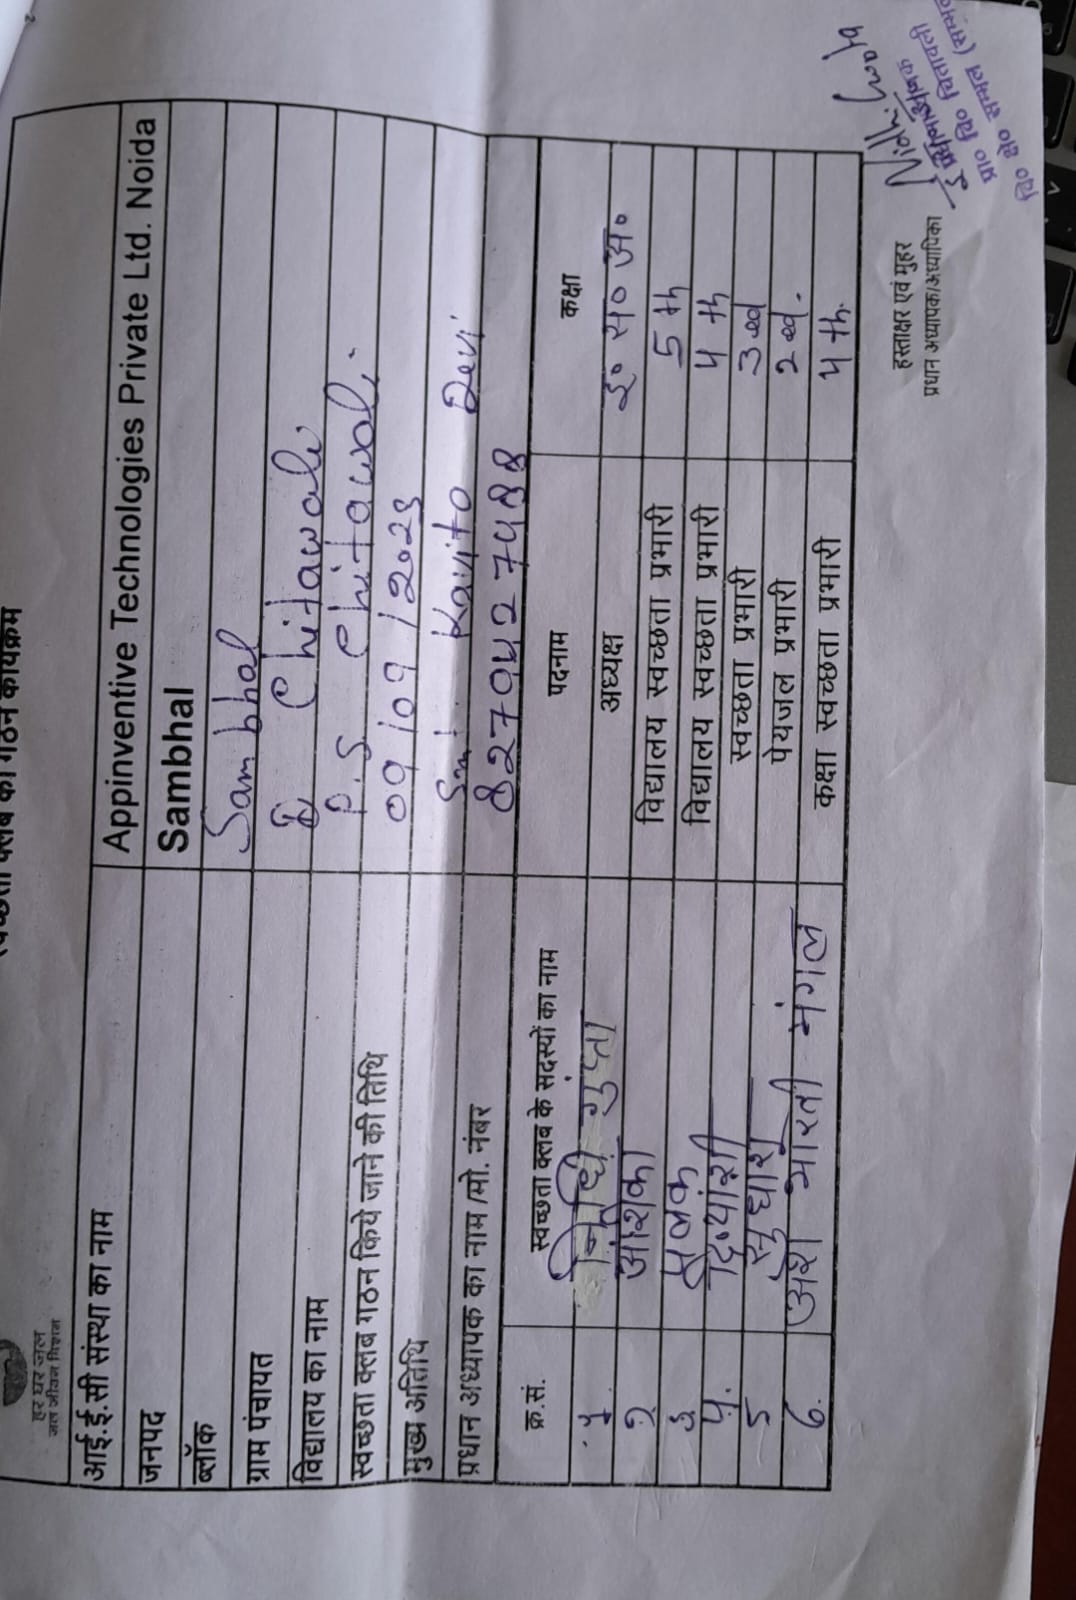 हर घर जल
जल जीवन मिशन
स्वच्छता क्लब का गठन कार्यक्रम
आई.ई.सी संस्था का नाम Appinventive Technologies Private Ltd. Noida
जनपद Sambhal
ब्लॉक Sambhal
ग्राम पंचायत Chitawali
विद्यालय का नाम P.S Chitawali.
स्वच्छता क्लब गठन किये जाने की तिथि 09/09/2023
मुख्य अतिथि Smt Kavita Devi
प्रधान अध्यापक का नाम /मो. नंबर
क्र.सं. स्वच्छता क्लब के सदस्यों का नाम पदनाम कक्षा
1 निधि गुप्ता अध्यक्ष इ० स० अ०
2 अंशिका विद्यालय स्वच्छता प्रभारी 5 th
3 विद्यालय स्वच्छता प्रभारी 4 th
4. दिव्यांशी स्वच्छता प्रभारी 3
5 सुधांशु पेयजल प्रभारी 2
6. अंश भारती मंगल कक्षा स्वच्छता प्रभारी 4 th.
हस्ताक्षर एवं मुहर
प्रधान अध्यापक/अध्यापिका
Nidhi Gupta
इं० प्रधानाध्यापक
प्रा० वि० चितावली
वि० क्षे० सम्भल (सम्भल)